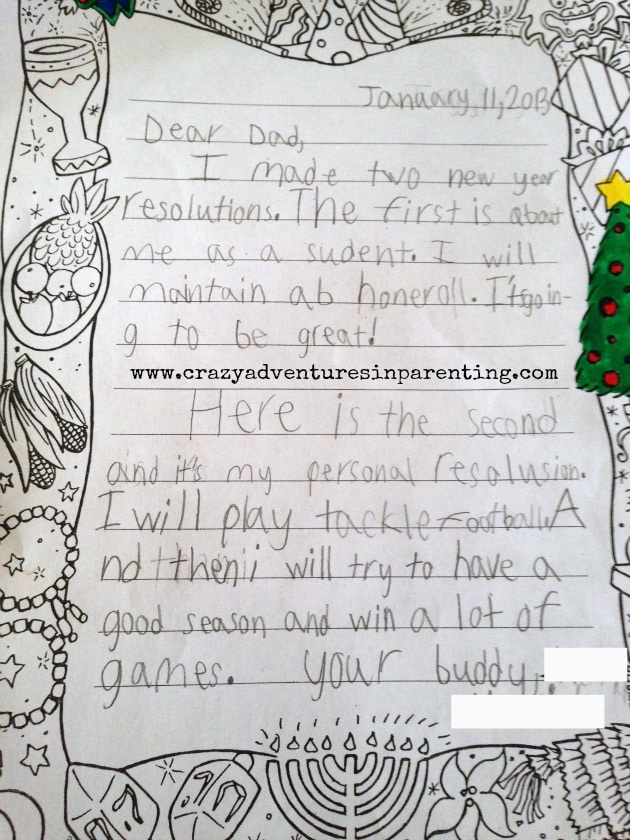 January, 11, 2013
Dear Dad,
I made two new year
resolutions. The first is about
me as a sudent. I will
maintain ab honeroll. It's goin-
g to be great!
www.crazyadventuresinparenting.com
Here is the second
and it's my personal resalusion.
I will play tackle football. A
nd then i will try to have a
good season and win a lot of
games. your buddy,